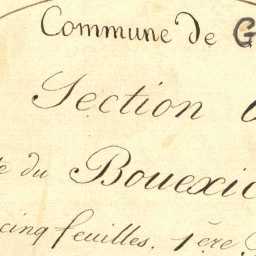 Commune de G
Section
du Bouexic
cinq feuilles. 1ère